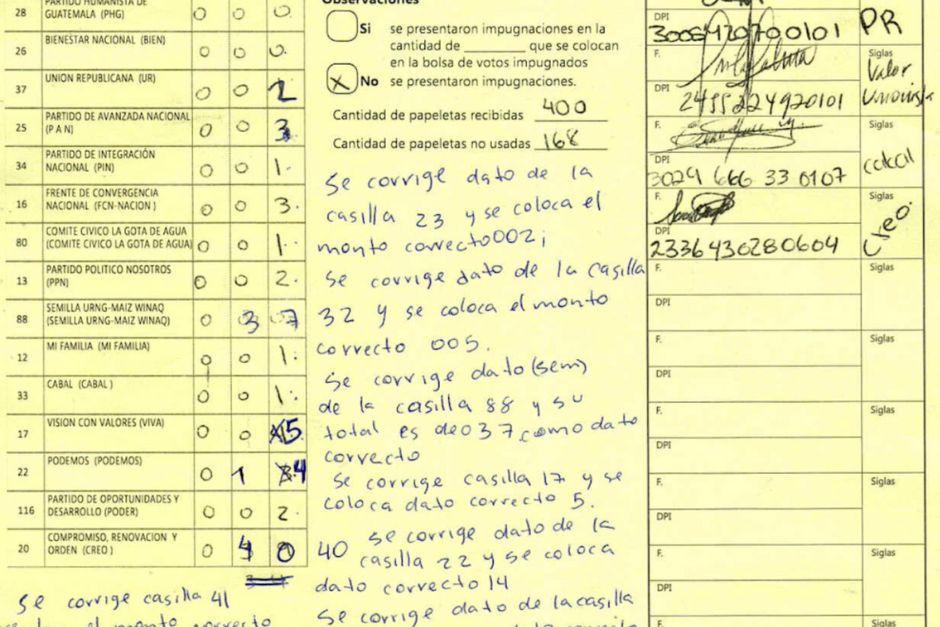 28 PARTIDO HUMANISTA DE
GUATEMALA (PHG) 0 0 0.
26 BIENESTAR NACIONAL (BIEN) 0 0 0.
37 UNION REPUBLICANA (UR) 0 0 2
25 PARTIDO DE AVANZADA NACIONAL
(P A N) 0 0 3
34 PARTIDO DE INTEGRACIÓN
NACIONAL (PIN) 0 0 1.
16 FRENTE DE CONVERGENCIA
NACIONAL (FCN-NACION ) 0 0 3.
80 COMITE CIVICO LA GOTA DE AGUA
(COMITE CIVICO LA GOTA DE AGUA) 0 0 1.
13 PARTIDO POLITICO NOSOTROS
(PPN) 0 0 2.
88 SEMILLA URNG-MAIZ WINAQ
(SEMILLA URNG-MAIZ WINAQ) 0 3 7
12 MI FAMILIA (MI FAMILIA) 0 0 1.
33 CABAL (CABAL ) 0 0 1.
17 VISION CON VALORES (VIVA) 0 0 5
22 PODEMOS (PODEMOS) 0 1 4
116 PARTIDO DE OPORTUNIDADES Y
DESARROLLO (PODER) 0 0 2.
20 COMPROMISO, RENOVACION Y
ORDEN (CREO ) 0 4 0
Se corrige casilla 41
el monto correcto
Observaciones
Si se presentaron impugnaciones en la
cantidad de ________ que se colocan
en la bolsa de votos impugnados
X No se presentaron impugnaciones.
Cantidad de papeletas recibidas 400
Cantidad de papeletas no usadas 168
Se corrige dato de la
casilla 23 y se coloca el
monto correcto 002;
Se corrige dato de la casilla
32 y se coloca el monto
correcto 005.
Se corrige dato (sem)
de la casilla 88 y su
total es de 037 como dato
correcto
Se corrige casilla 17 y se
coloca dato correcto 5.
40 Se corrige dato de la
casilla 22 y se coloca
dato correcto 14
Se corrige dato de la casilla
DPI
3005420700101 PR
F. Siglas
Valor
Unionista
DPI
2455224920101
F. Siglas
cabal
DPI
3029 666 33 0107
F. Siglas
Creo.
DPI
2336430280604
F. Siglas
DPI
F. Siglas
DPI
F. Siglas
DPI
F. Siglas
DPI
F. Siglas
DPI
F. Siglas